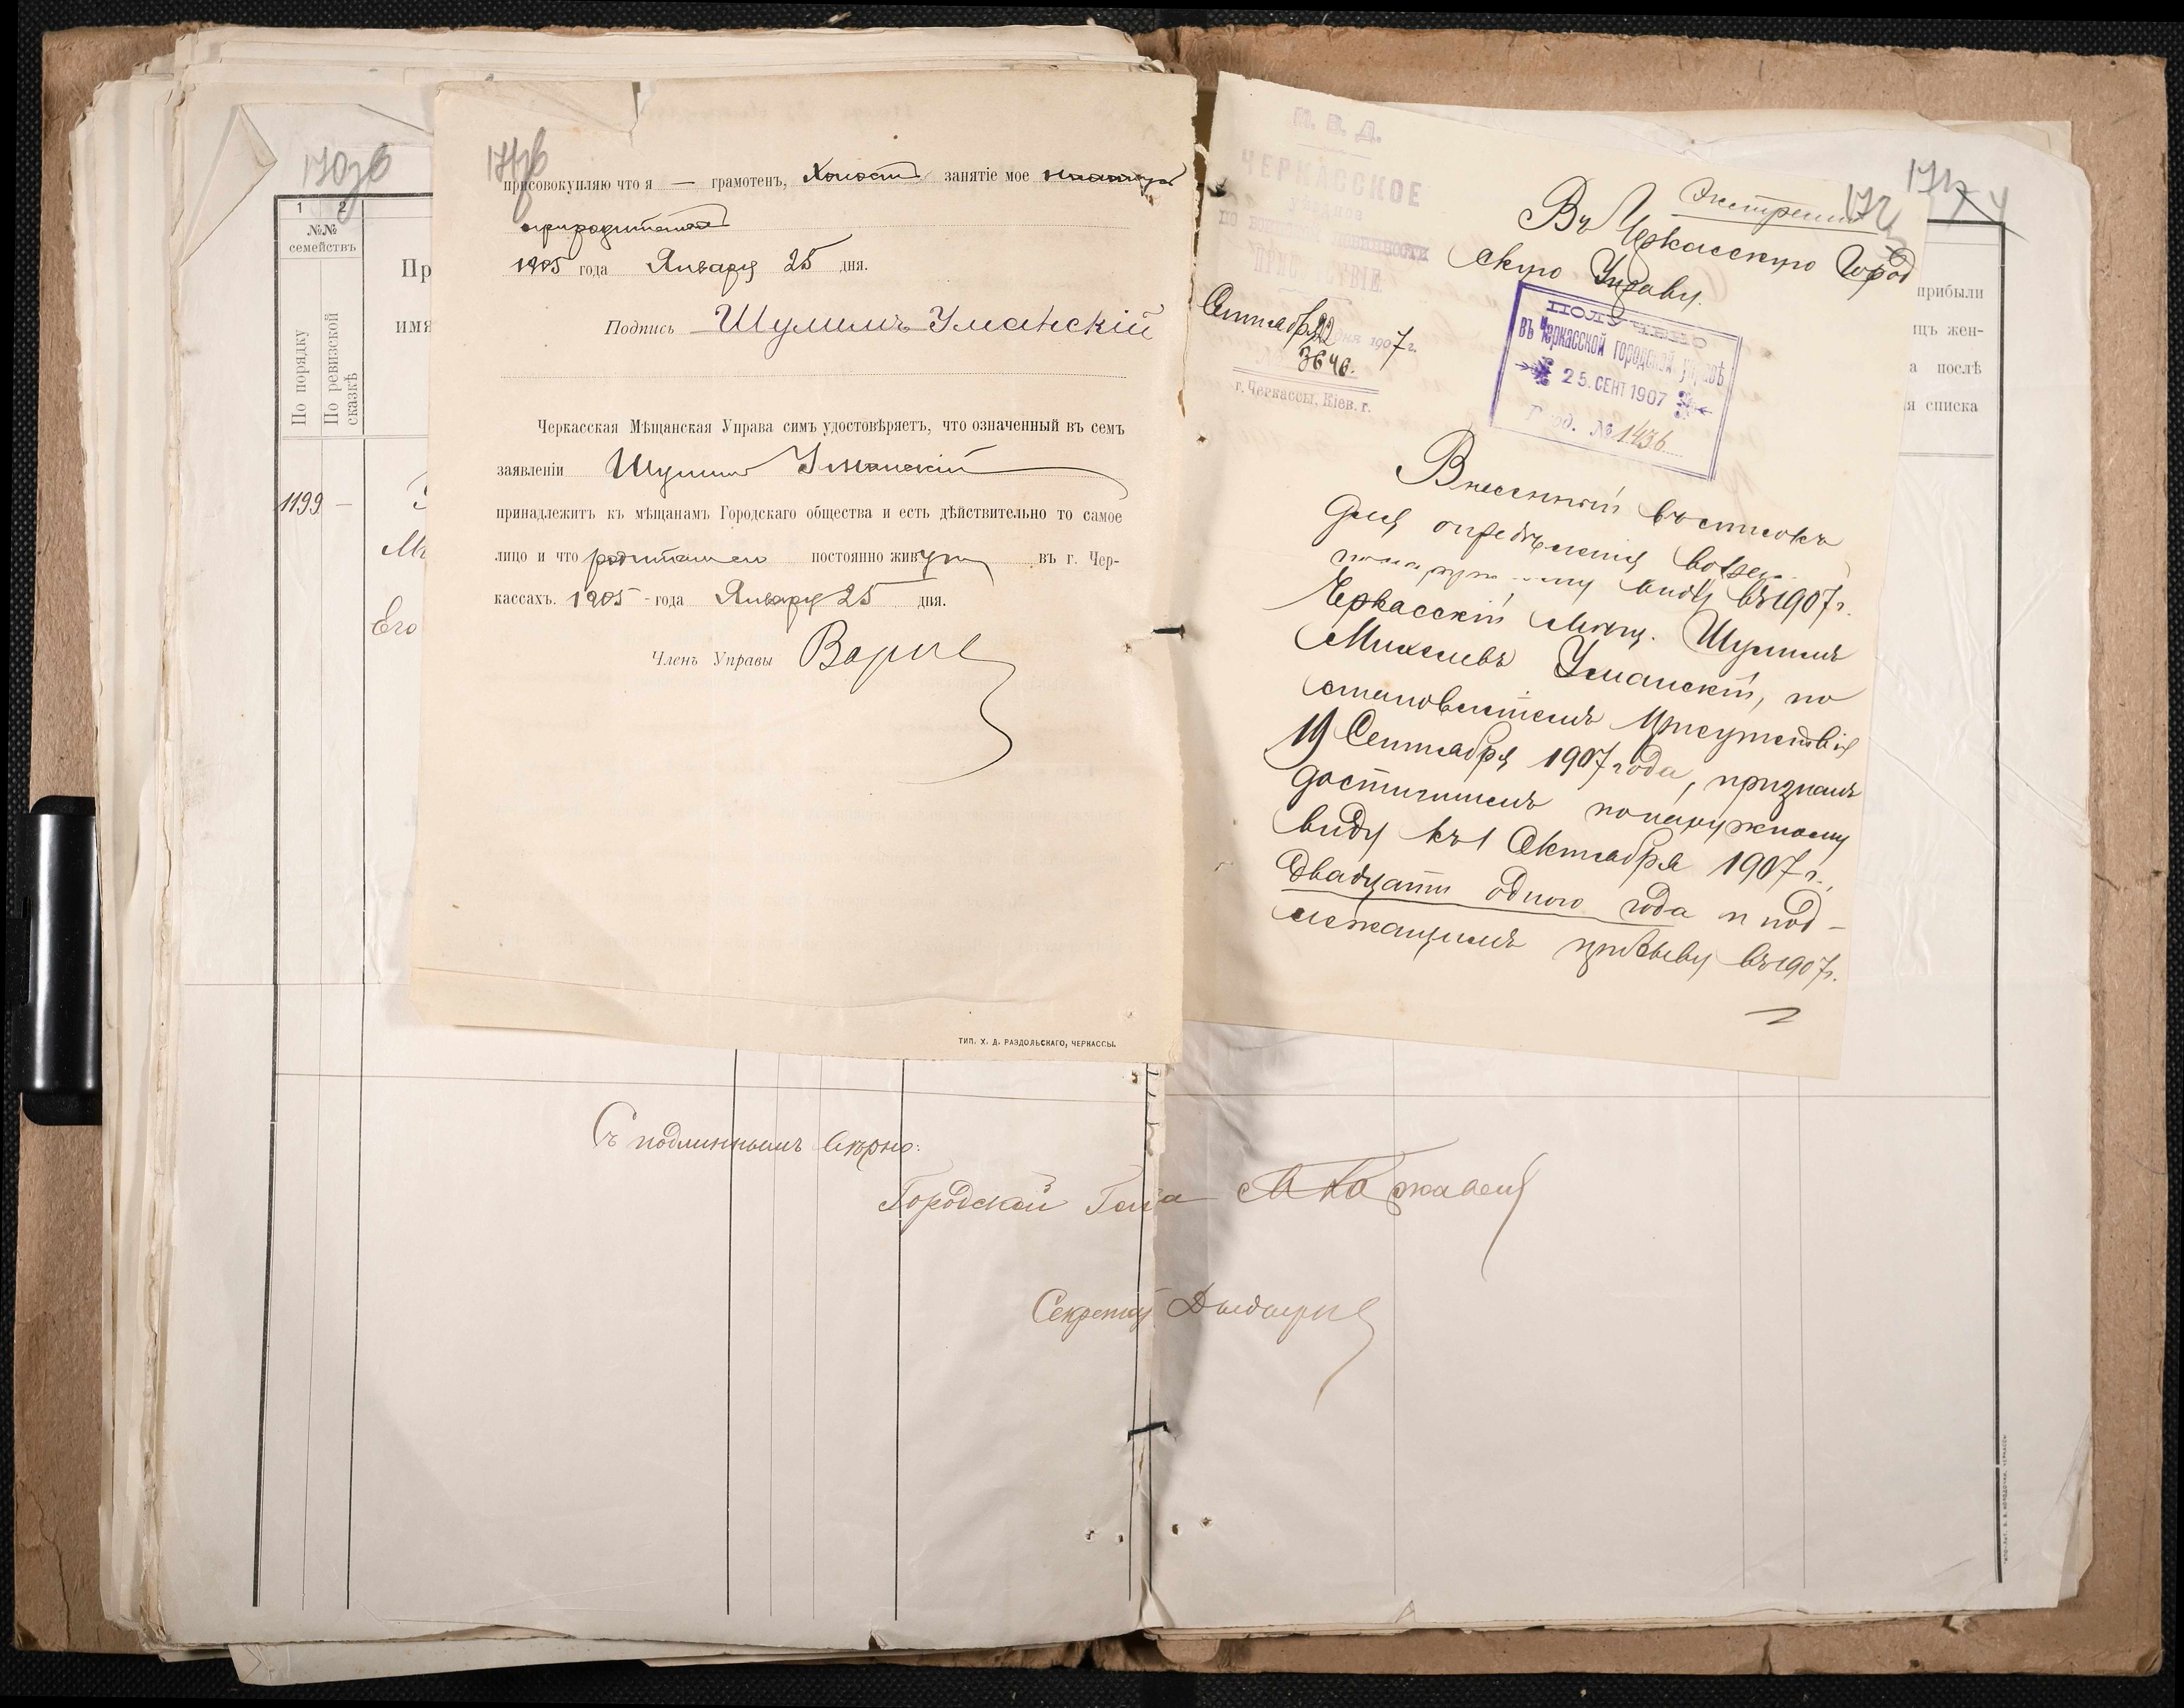 170 об
1 2
№№
семействъ
По порядку
По ревизской
сказкѣ
Пр
имя
1199 —
Его
171 об
присовокупляю что я — грамотенъ, Холостъ занятіе мое
при родителяхъ
1905 года Января 25 дня.
Подпись Шулимъ Уманскій
Черкасская Мѣщанская Управа симъ удостовѣряетъ, что означенный въ семъ
заявленіи Шулимъ Уманскій
принадлежитъ къ мѣщанамъ Городскаго общества и есть дѣйствительно то самое
лицо и что родители его постоянно живутъ въ г. Чер-
кассахъ. 1905 года Января 25 дня.
Членъ Управы
ТИП. Х. Д. РАЗДОЛЬСКАГО, ЧЕРКАССЫ.
Съ подлиннымъ вѣрно:
Городской Голова
Секретарь
171
172
М. В. Д.
ЧЕРКАССКОЕ
уѣздное
по воинской повинности
ПРИСУТСТВІЕ
Сентября 22 дня 1907 г.
№ 3646.
г. Черкассы, Кіев. г.
Экстренно
Въ Черкасскую Город
скую Управу.
ПОЛУЧЕНО
въ Черкасской городской управѣ
25. СЕНТ 1907
Вход. № 1436
Внесенный въ списокъ
для опредѣленія возр.
по наружному виду въ 1907 г.
Черкасскій мѣщ. Шулимъ
Михелевъ Уманскій, по
становленіемъ Присутствія
19 Сентября 1907 года, признанъ
достигшимъ по наружному
виду къ 1 Октября 1907 г.,
двадцати одного года и под-
лежащимъ призыву въ 1907 г.
прибыли
ицъ жен-
а послѣ
я списка